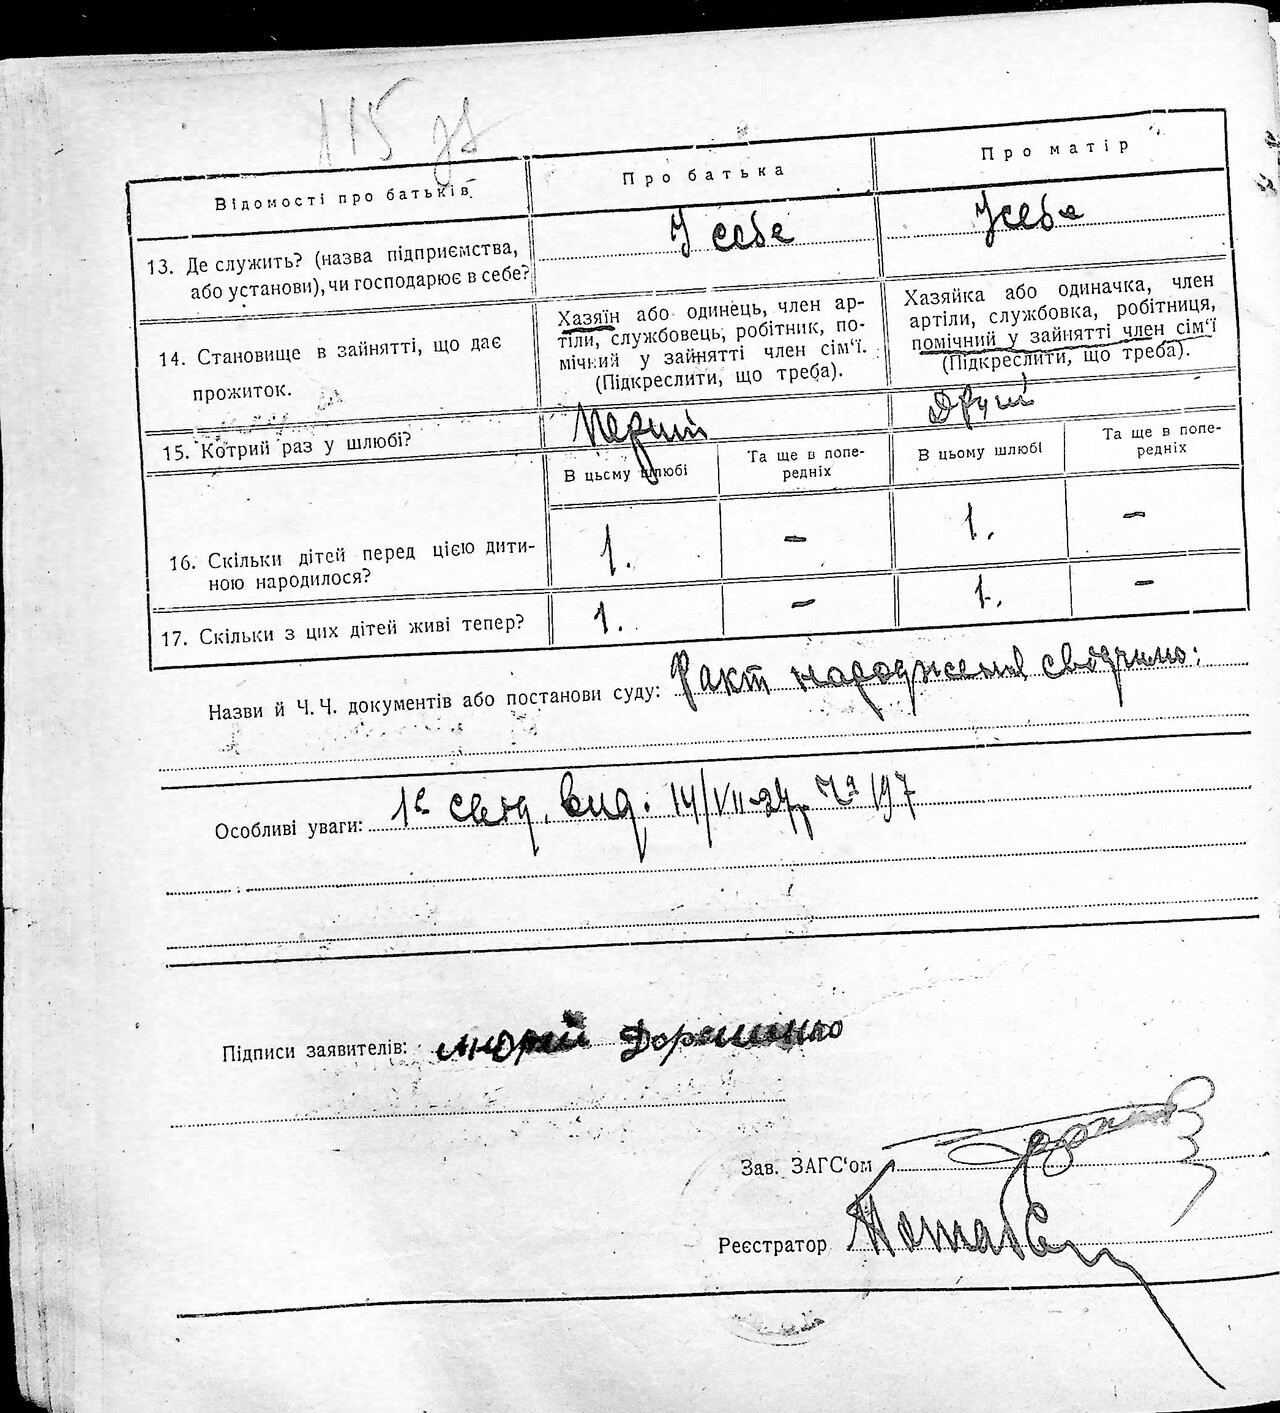 115 зв
Відомості про батьків.
Про батька
Про матір
13. Де служить? (назва підприємства,
або установи), чи господарює в себе?
У себе
У себе
14. Становище в зайнятті, що дає
прожиток.
Хазяїн або одинець, член ар-
тіли, службовець, робітник, по-
мічний у зайнятті член сім‘ї.
(Підкреслити, що треба).
Хазяйка або одиначка, член
артіли, службовка, робітниця,
помічний у зайнятті член сім‘ї
(Підкреслити, що треба).
15. Котрий раз у шлюбі?
Перший
Другий
В цьому шлюбі
Та ще в попе-
редніх
В цьому шлюбі
Та ще в попе-
редніх
16. Скільки дітей перед цією дити-
ною народилося?
1. - 1. -
17. Скільки з цих дітей живі тепер?
1. - 1. -
Назви й Ч.Ч. документів або постанови суду: Факт народження свідчимо:
Особливі уваги: вид. 14/VII-27р № 197
Підписи заявителів: Андрій Дорошенко
Зав. ЗАГС‘ом
Реєстратор